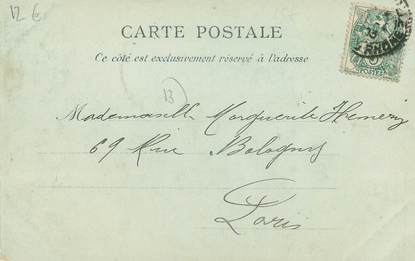 12 €
CARTE POSTALE
Ce côté est exclusivement réservé à l'adresse
POSTES
13
Mademoiselle Marguerite
69 Rue
Paris